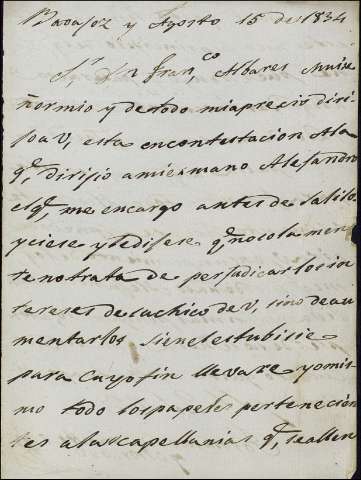 Badajoz y Agosto 15 de 1834
Sr. Dn. Franco Albares Muise
ñormio y de todo mi aprecio diri
jo a V, esta en contestacion Ala
q. dirijio a mi ermano Alejandro
el q. me encargo antes de salilo
yciese y le dijese q. no sola men
te no trata de perjudicar los in
tereses de la chico de V, sino de au
mentarlos si en el estubiese
para cuyo fin llevare yo mis
mo todo los papeles pertenecien
tes a las capellanias q. se allen